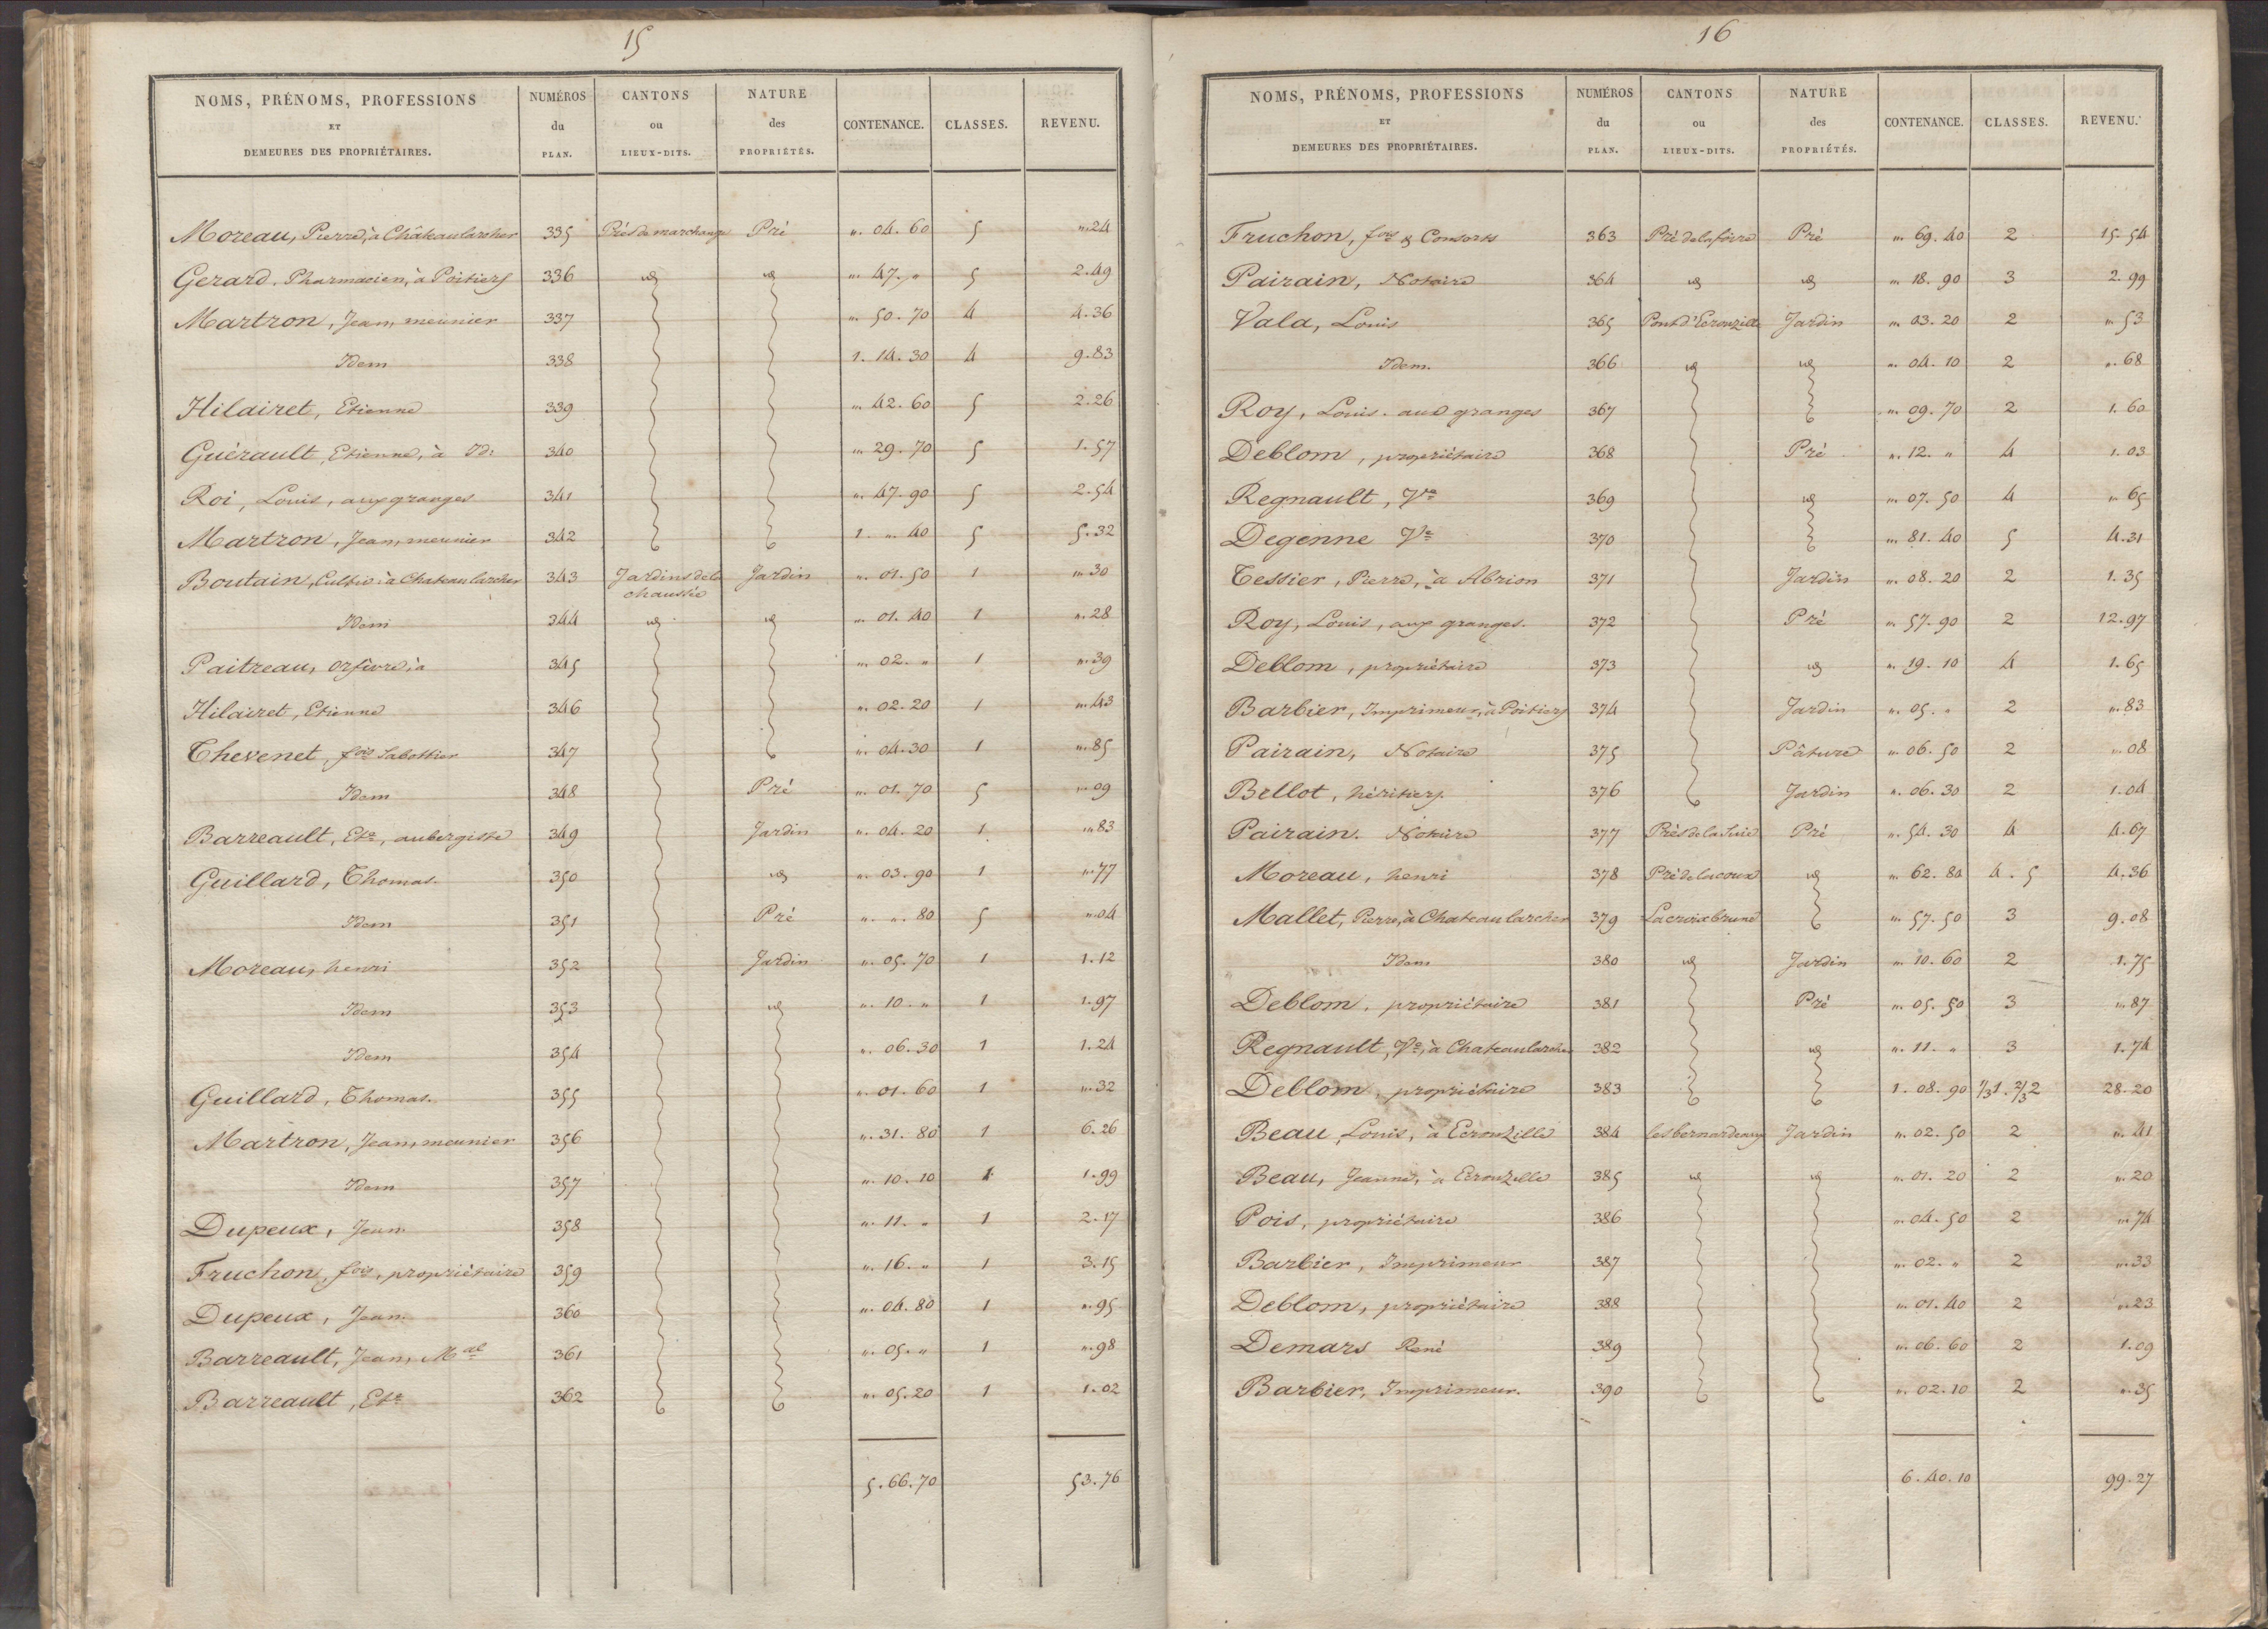 15
NOMS, PRÉNOMS, PROFESSIONS ET DEMEURES DES PROPRIÉTAIRES. NUMÉROS du PLAN. CANTONS ou LIEUX-DITS. NATURE des PROPRIÉTÉS. CONTENANCE. CLASSES. REVENU.
Moreau, Pierre, à Châteaularcher 335 Prés de marchange Pré ". 04. 60 5 ". 24
Gerard. Pharmacien, à Poitiers 336 id id ". 47. " 5 2. 49
Martron, Jean, meunier 337 ". 50. 70 4 4. 36
Idem 338 1. 14. 30 4 9. 83
Hilairet, Etienne 339 ". 42. 60 5 2. 26
Guérault, Etienne, à Id: 340 ". 29. 70 5 1. 57
Roi, Louis, aux granges 341 ". 47. 90 5 2. 54
Martron, Jean, meunier 342 1. ". 40 5 5. 32
Boutain, Cultiv. à Chateaularcher 343 Jardins de la chaussée Jardin ". 01. 50 1 ". 30
Idem 344 id id ". 01. 40 1 ". 28
Paitreau, orfèvre, à 345 ". 02. " 1 ". 39
Hilairet, Etienne 346 ". 02. 20 1 ". 43
Thevenet, fois Sabottier 347 ". 04. 30 1 ". 85
Idem 348 Pré ". 01. 70 5 ". 09
Barreault, Ete, aubergiste 349 Jardin ". 04. 20 1 ". 83
Guillard, Thomas. 350 id ". 03. 90 1 ". 77
Idem 351 Pré ". ". 80 5 ". 04
Moreau, henri 352 Jardin ". 05. 70 1 1. 12
Idem 353 id ". 10. " 1 1. 97
Idem 354 ". 06. 30 1 1. 24
Guillard, Thomas. 355 ". 01. 60 1 ". 32
Martron, Jean, meunier 356 ". 31. 80 1 6. 26
Idem 357 ". 10. 10 1 1. 99
Dupeux, Jean 358 ". 11. " 1 2. 17
Fruchon, fois, propriétaire 359 ". 16. " 1 3. 15
Dupeux, Jean. 360 ". 04. 80 1 ". 95
Barreault, Jean, Mal 361 ". 05. " 1 ". 98
Barreault, Ete 362 ". 05. 20 1 1. 02
5. 66. 70 53. 76
16
NOMS, PRÉNOMS, PROFESSIONS ET DEMEURES DES PROPRIÉTAIRES. NUMÉROS du PLAN. CANTONS ou LIEUX-DITS. NATURE des PROPRIÉTÉS. CONTENANCE. CLASSES. REVENU.
Fruchon, fois & Consorts 363 Pré de la foire Pré ". 69. 40 2 15. 54
Pairain, Notaire 364 id id ". 18. 90 3 2. 99
Vala, Louis 365 Pont d'Ecrouzille Jardin ". 03. 20 2 ". 53
Idem. 366 id id ". 04. 10 2 ". 68
Roy, Louis. aux granges 367 ". 09. 70 2 1. 60
Deblom, propriétaire 368 Pré ". 12. " 4 1. 03
Regnault, Ve 369 id ". 07. 50 4 ". 65
Degenne Ve 370 ". 81. 40 5 4. 31
Tessier, Pierre, à Abrion 371 Jardin ". 08. 20 2 1. 35
Roy, Louis, aux granges. 372 Pré ". 57. 90 2 12. 97
Deblom, propriétaire 373 id ". 19. 10 4 1. 65
Barbier, Imprimeur, à Poitiers 374 Jardin ". 05. " 2 ". 83
Pairain, Notaire 375 Pâture ". 06. 50 2 ". 08
Bellot, héritiers. 376 Jardin ". 06. 30 2 1. 04
Pairain. Notaire 377 Prés de la Suie Pré ". 54. 30 4 4. 67
Moreau, henri 378 Pré de lacoux id ". 62. 80 4. 5 4. 36
Mallet, Pierre, à Chateaularcher 379 Lacroix brune ". 57. 50 3 9. 08
Idem 380 id Jardin ". 10. 60 2 1. 75
Deblom, propriétaire 381 Pré ". 05. 50 3 ". 87
Regnault, Ve, à Chateaularcher 382 id ". 11. " 3 1. 74
Deblom, propriétaire 383 1. 08. 90 1/3 1. 2/3 2 28. 20
Beau, Louis, à Ecrouzille 384 les bernardeaux Jardin ". 02. 50 2 ". 41
Beau, Jeanne, à Ecrouzille 385 id id ". 01. 20 2 ". 20
Pois, propriétaire 386 ". 04. 50 2 ". 74
Barbier, Imprimeur 387 ". 02. " 2 ". 33
Deblom, propriétaire 388 ". 01. 40 2 ". 23
Demars René 389 ". 06. 60 2 1. 09
Barbier, Imprimeur. 390 ". 02. 10 2 ". 35
6. 40. 10 99. 27